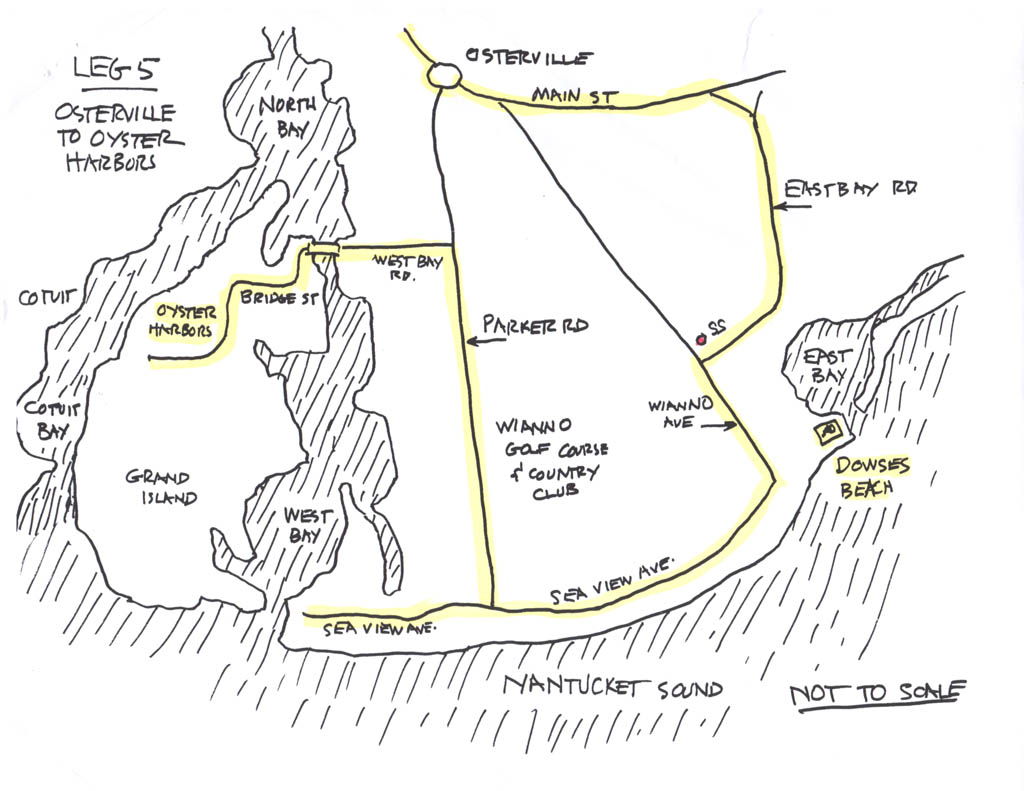 LEG 5
OSTERVILLE
TO OYSTER
HARBORS
OSTERVILLE
MAIN ST
NORTH
BAY
EAST BAY RD
WEST BAY
RD.
COTUIT
BRIDGE ST
OYSTER
HARBORS
PARKER RD
SS
EAST
BAY
WIANNO
AVE
COTUIT
BAY
WIANNO
GOLF COURSE
& COUNTRY
CLUB
DOWSES
BEACH
GRAND
ISLAND
WEST
BAY
SEA VIEW AVE.
SEA VIEW AVE.
NANTUCKET SOUND
NOT TO SCALE